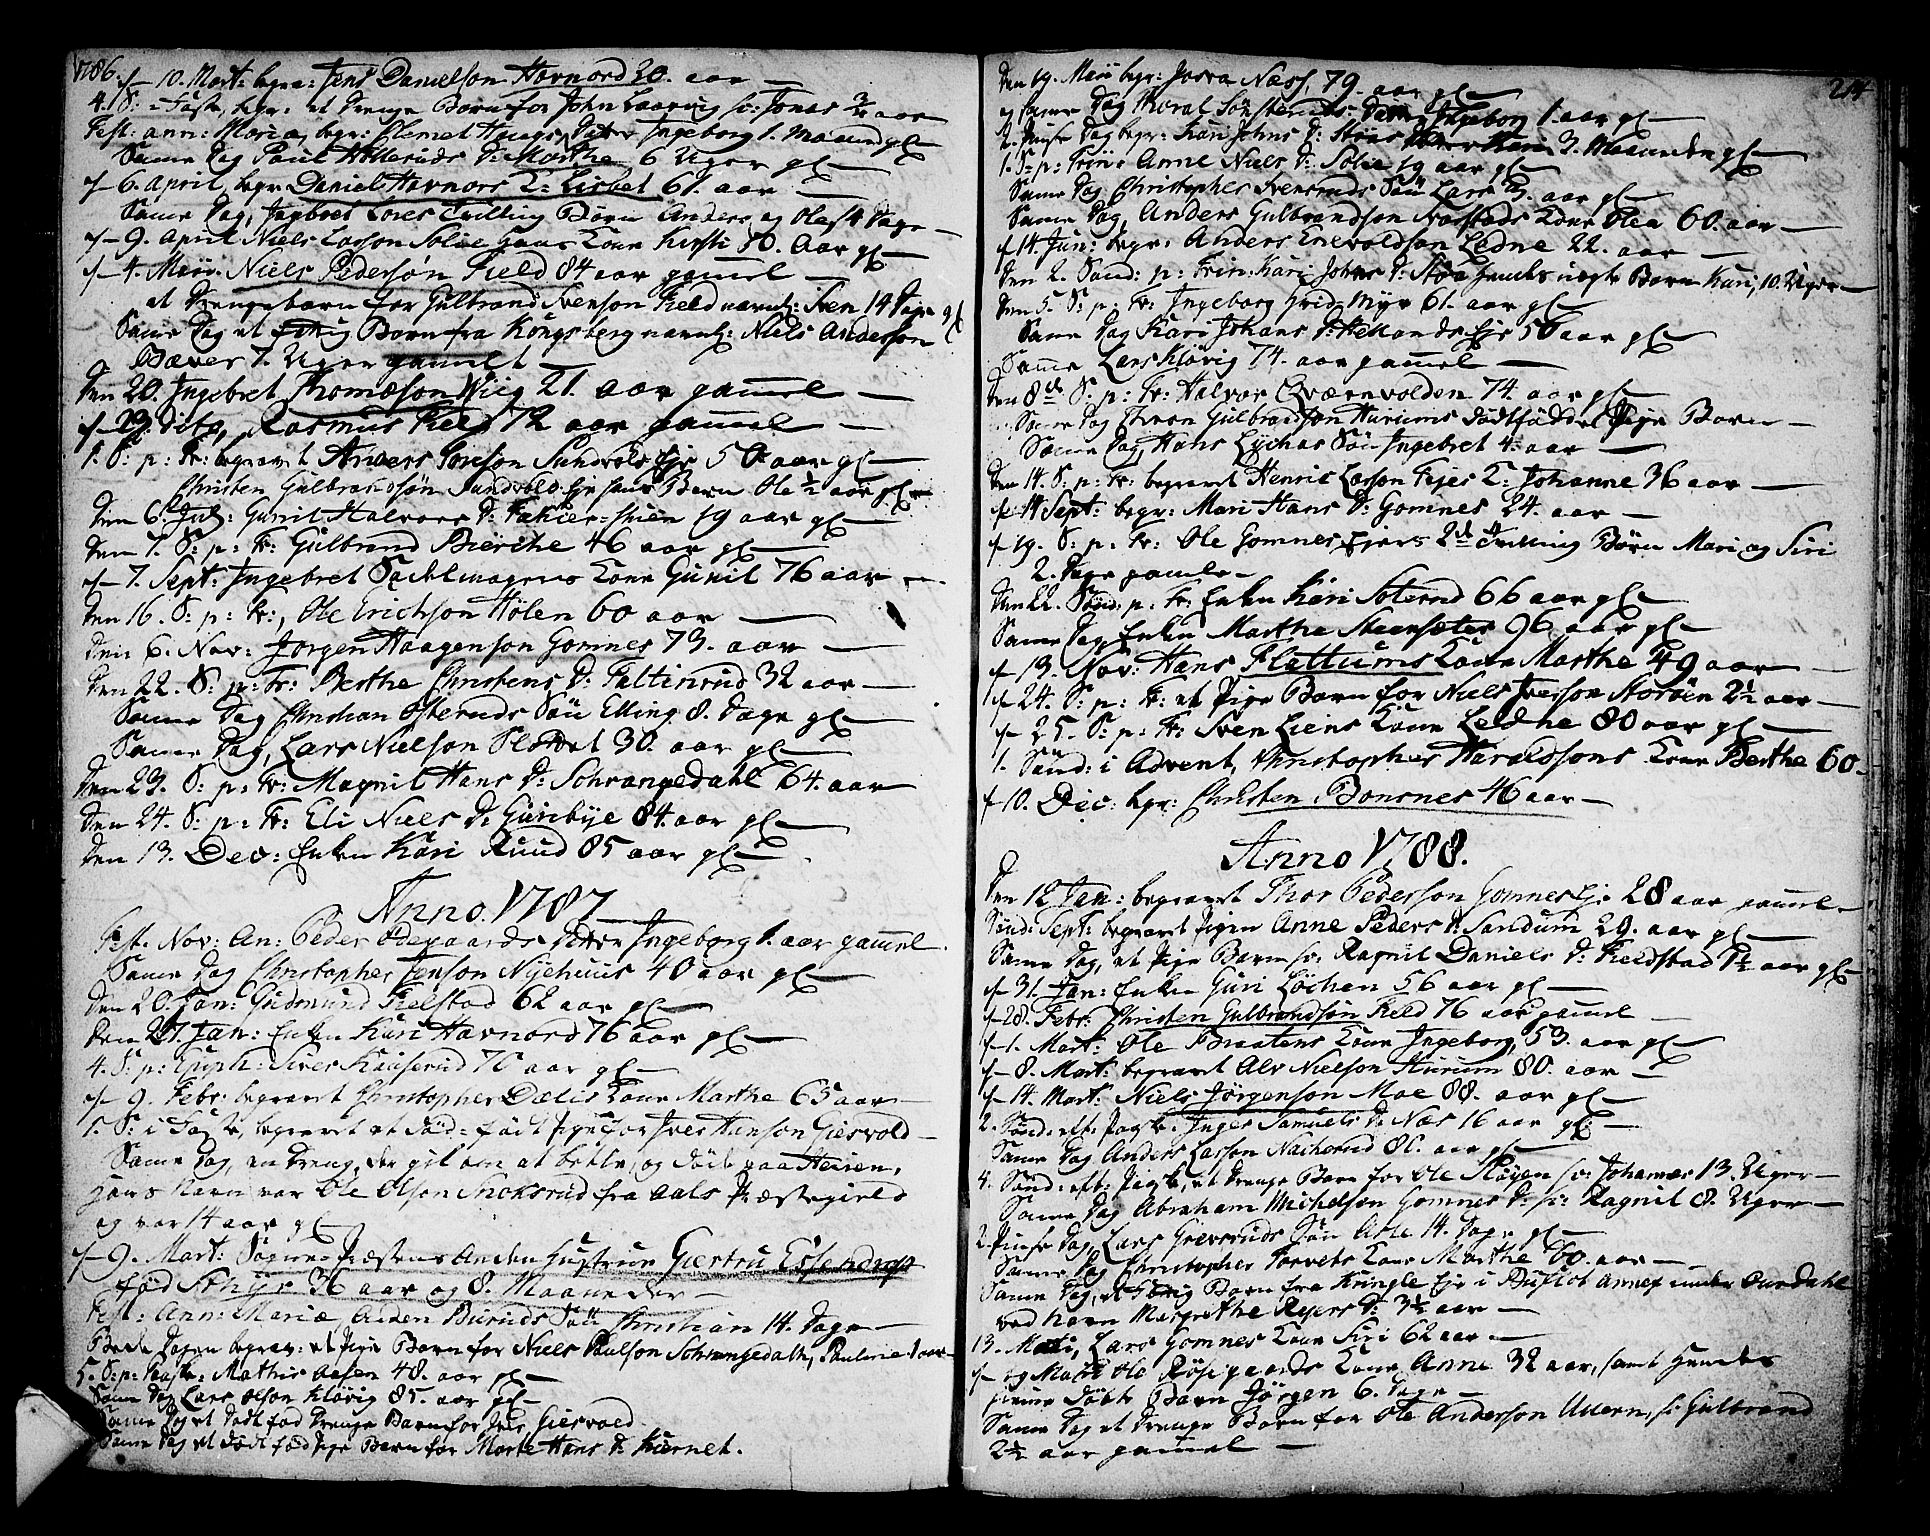 1786.
d– 10. Mart: begra: Jens Danielson Havnord 20. aar —
4. S: i Faste, begr: et Drenge Børn for John Laaring n: Jonas 3/4 aar
Fest: ann: Mariæ, begr: Clemet Haugs Datter Ingeborg 1. Maaned gl —
Same Dag Paul Hillerüds D: Marthe 6 Uger gl —
d– 6. April, begr. Daniel Havnors K: Lisbet 61. aar —
Same Dag, Ingebret Lores Tvilling Børn Anders og Olaf 4 Dage —
d– 9. April Niels Larson Solie hans Kone Kirsti 80. Aar gl —
d– 4. Maii. Niels Pedersøn Field 84 aar gamel —
et Drengebarn for Gulbrand Svenson Field navnl: Sven 14 Dage gl
Same Dag et Barn fra Kongsberg navnl: Niels Anderson
Bæver 7. Uger gamelt —
Den 20. Ingebret Thomæson Wiig 21. aar gamel —
d– 29. dito, Rasmus Field 72 aar gamel —
1. S: p: Tr: begravet Anders Sundvols Eje 50 aar gl —
Christen Gulbrandsøn Sundvold Eje hans Barn Ole 1/2 aar gl —
Den 6. Jul: Gunil Halvors D: 19 aar gl —
Den 7. S: p: Tr: Gulbrand Bierche 46 aar gl —
d– 7. Sept: Ingebret Sadelmagers Kone Gunil 76 aar —
Den 16. S: p: Tr:, Ole Erichson Hølen 60 aar —
Den 6. Nov: Jørgen Haagenson Gomnes 73. aar —
Den 22. S: p: Tr: Berthe Christens D: Faltinrud 32 aar —
Same Dag Christian Osteruds Søn Elling 8. Dage gl —
Same Dag, Lars Nielson Slottet 30. aar gl —
Den 23. S: p: Tr: Magnil Hans D: Schrangedahl 64. aar
Den 24. S: p: Tr: Eli Niels D: Guribye 84. aar gl —
Den 13. Dec: Enken Kari Ruud 85 aar gl —
Anno. 1787
Fest. Nov: An: Peder Ødegaards Datter Ingeborg 1. aar gamel.
Same Dag Christopher Jenson Nyehuus 40 aar gl —
Den 20. Jan: Gudmund Fielstad 62 aar gl —
Den 27. Jan: Enken Kari Havnord 76 aar gl —
4. S: p: Epiph: Siver 70 aar gl —
d– 9. Febr: begravet Christopher Dælis Kone Marthe 65 aar —
1. S: i Faste, begravet et Død-født Pige for Iver Hanson Giesvold —
Same Dag, en Dreng, der gik om at betle, og døde paa Heien,
hans Navn var Ole Olson Snoksrud fra Aals Præstegield
og var 14 aar gl —
d– 9. Mart: Sogne-Præstens Anden Hustrue Giertru Essendrop
fød Schyts 36 aar og 8. Maaneder —
Fest: Ann: Mariæ, Anden Buruds Søn Christian 14. Dage —
Bede Dagen begrav: et Pige Barn for Niels Paulson Schrangedahl, Pauline 1 aar —
5. S: p: Paaske: Mathis Aasen 48. aar gl —
Same Dag Lars Olson Kløvig 85. aar gl —
Same Dag et Dødt fød Drenge Barn for Iver Giesvold.
Same Dag et Dødt fød Pige Barn for Marte Hans D: Kiernet.
214
Den 19. Maii begr: Joran Næss, 79. aar gl —
Same Dag Thoral Sønsteruds Datter Ingeborg 1. aar gl —
2. Pinse Dag begr: Kari Johns D: Støas Datter Kari 3. Maaneder gl —
1. S: p: Trin: Anne Niels D: Solie 19 aar gl —
Same Dag Christopher Svensruds Søn Lars 3. aar gl —
Same Dag, Anders Gulbrandson Kone Olea 60. aar —
d– 14. Jun: begr: Anders Enevoldson Ledne 22. aar —
Den 2. Sønd: p: Trin: Kari Johns D: Støa hendes uegte Barn Kari, 10. Uger —
Den 5. S: p: Tr: Ingeborg Myr 61. aar gl —
Same Dag Kari Johans D: Eje 50 aar gl —
Same Lars Kløvig 74. aar gamel —
Den 8de S: p: Tr: Halvor Qværnvolden 74. aar gl —
Same Dag Gulbrandson Hurums dødfødde Pige Barn —
Same Dag Hans Lychas Søn Ingebret 4. aar —
Den 14. S: p: Tr: begravet Henric Larson Fejes K: Johanne 36 aar —
d– 14 Sept: begr: Mari Hans D: Gomnes 24. aar —
d– 19. S: p: Tr: Ole Gomnes Ejers 2de Tvilling Børn Mari og Siri
2. Dage gamle —
Den 22. Sønd: p: Tr: Enken Kari Soterud 66 aar gl —
Same Dag Enken Marthe Steensæter 96 aar gl —
d– 13. Nov: Hans Flattums Kone Marthe 49 aar —
d– 24. S: p: Tr: et Pige Barn for Niels Iverson Storøen 2 1/2 aar —
d– 25. S: p: Tr: Sven Liens Kone Ledne 80 aar gl —
1. Sønd: i Advent, Christopher Haraldssons Kone Berthe 60 —
d– 10. Dec: begr: Christen Bonsnes 46 aar —
Anno 1788.
Den 12 Jan: begravet Thor Pederson Gomnes Eje 28 aar gamel —
Sønd: Sept: begravet Pigen Anne Peders D: Sandum 29. aar gl —
Same Dag, et Pige Barn n: Ragnil Daniels D: Fieldstad 1 1/2 aar gl —
d– 31. Jan: Enken Guri Løchen 56 aar gl —
d– 28. Febr: Christen Gulbrandsøn Field 76 aar gamel —
d– 1. Mart: Ole Braatens Kone Ingeborg, 53. aar gl —
d– 8. Mart: begravet Alv Nielson Hurum 80. aar —
d– 14. Mart: Niels Jørgenson Moe 88. aar gl —
2. Sønd: eft: Paask: Inger Samuels D: Næs 16 aar gl —
Same Dag Anders Larson Nacherud 80. aar gl —
4. Sønd: eft: Paask, et Drenge Barn for Ole Støyen n: Johannes 13. Uger —
Same Dag Abraham Michelson Gomnes D: n: Ragnil 8. Uger —
2. Pinse Dag, Lars Grevsruds Søn Atle 14. Dage gl —
Same Dag Christopher Torvets Kone Marthe 60. aar —
Same Dag, et Barn fra Kringle Eje i Annex under Aurdahl
ved Navn Margrethe Rejers D: 3 1/2 aar —
13. Maii, Lars Gomnes Kone Siri 62 aar —
d– og Mari Ole Røsegaards Kone Anne 32 aar, samt hendes
hiemme døbte Barn Jørgen 6. Dage —
Same Dag et Drenge Barn for Ole Anderson Ullern, n: Gulbrand
2 1/2 aar gamel —